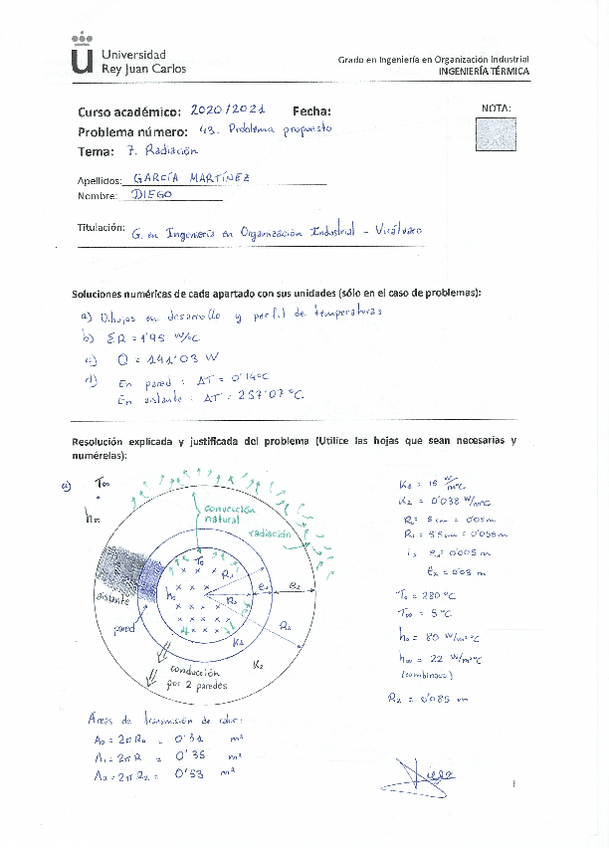 Universidad
Rey Juan Carlos
Grado en Ingeniería en Organización Industrial
INGENIERÍA TÉRMICA
Curso académico: 2020/2021 Fecha:
NOTA:
Problema número: 43. Problema propuesto
Tema: 7. Radiación
Apellidos: GARCÍA MARTÍNEZ
Nombre: DIEGO
Titulación: G. en Ingeniería en Organización Industrial - Vicálvaro
Soluciones numéricas de cada apartado con sus unidades (sólo en el caso de problemas):
a) Dibujos en desarrollo y perfil de temperaturas
b) ΣR = 1'95 W/ºC
c) Q = 141'03 W
d) En pared : ΔT = 0'14ºC
En aislante : ΔT = 257'07 ºC
Resolución explicada y justificada del problema (Utilice las hojas que sean necesarias y
numérelas):
a)
T∞
h∞
convección
natural
radiación
T₀
h₀
R₁
R₀
e₁
e₂
R₂
K₂
aislante
pared
conducción
por 2 paredes
K₁ = 15 W/mºC
K₂ = 0'038 W/mºC
R₀ = 5 cm = 0'05m
R₁ = 5'5 cm = 0'055m
e₂ = 0'03 m
T₀ = 280 ºC
T∞ = 5ºC
h₀ = 80 W/m²ºC
h∞ = 22 W/m²ºC
(combinado)
R₂ = 0'085 m
Áreas de transmisión de calor:
A₀ = 2πR₀ = 0'31 m²
A₁ = 2πR = 0'35 m²
A₂ = 2πR₂ = 0'53 m²
Diego
1